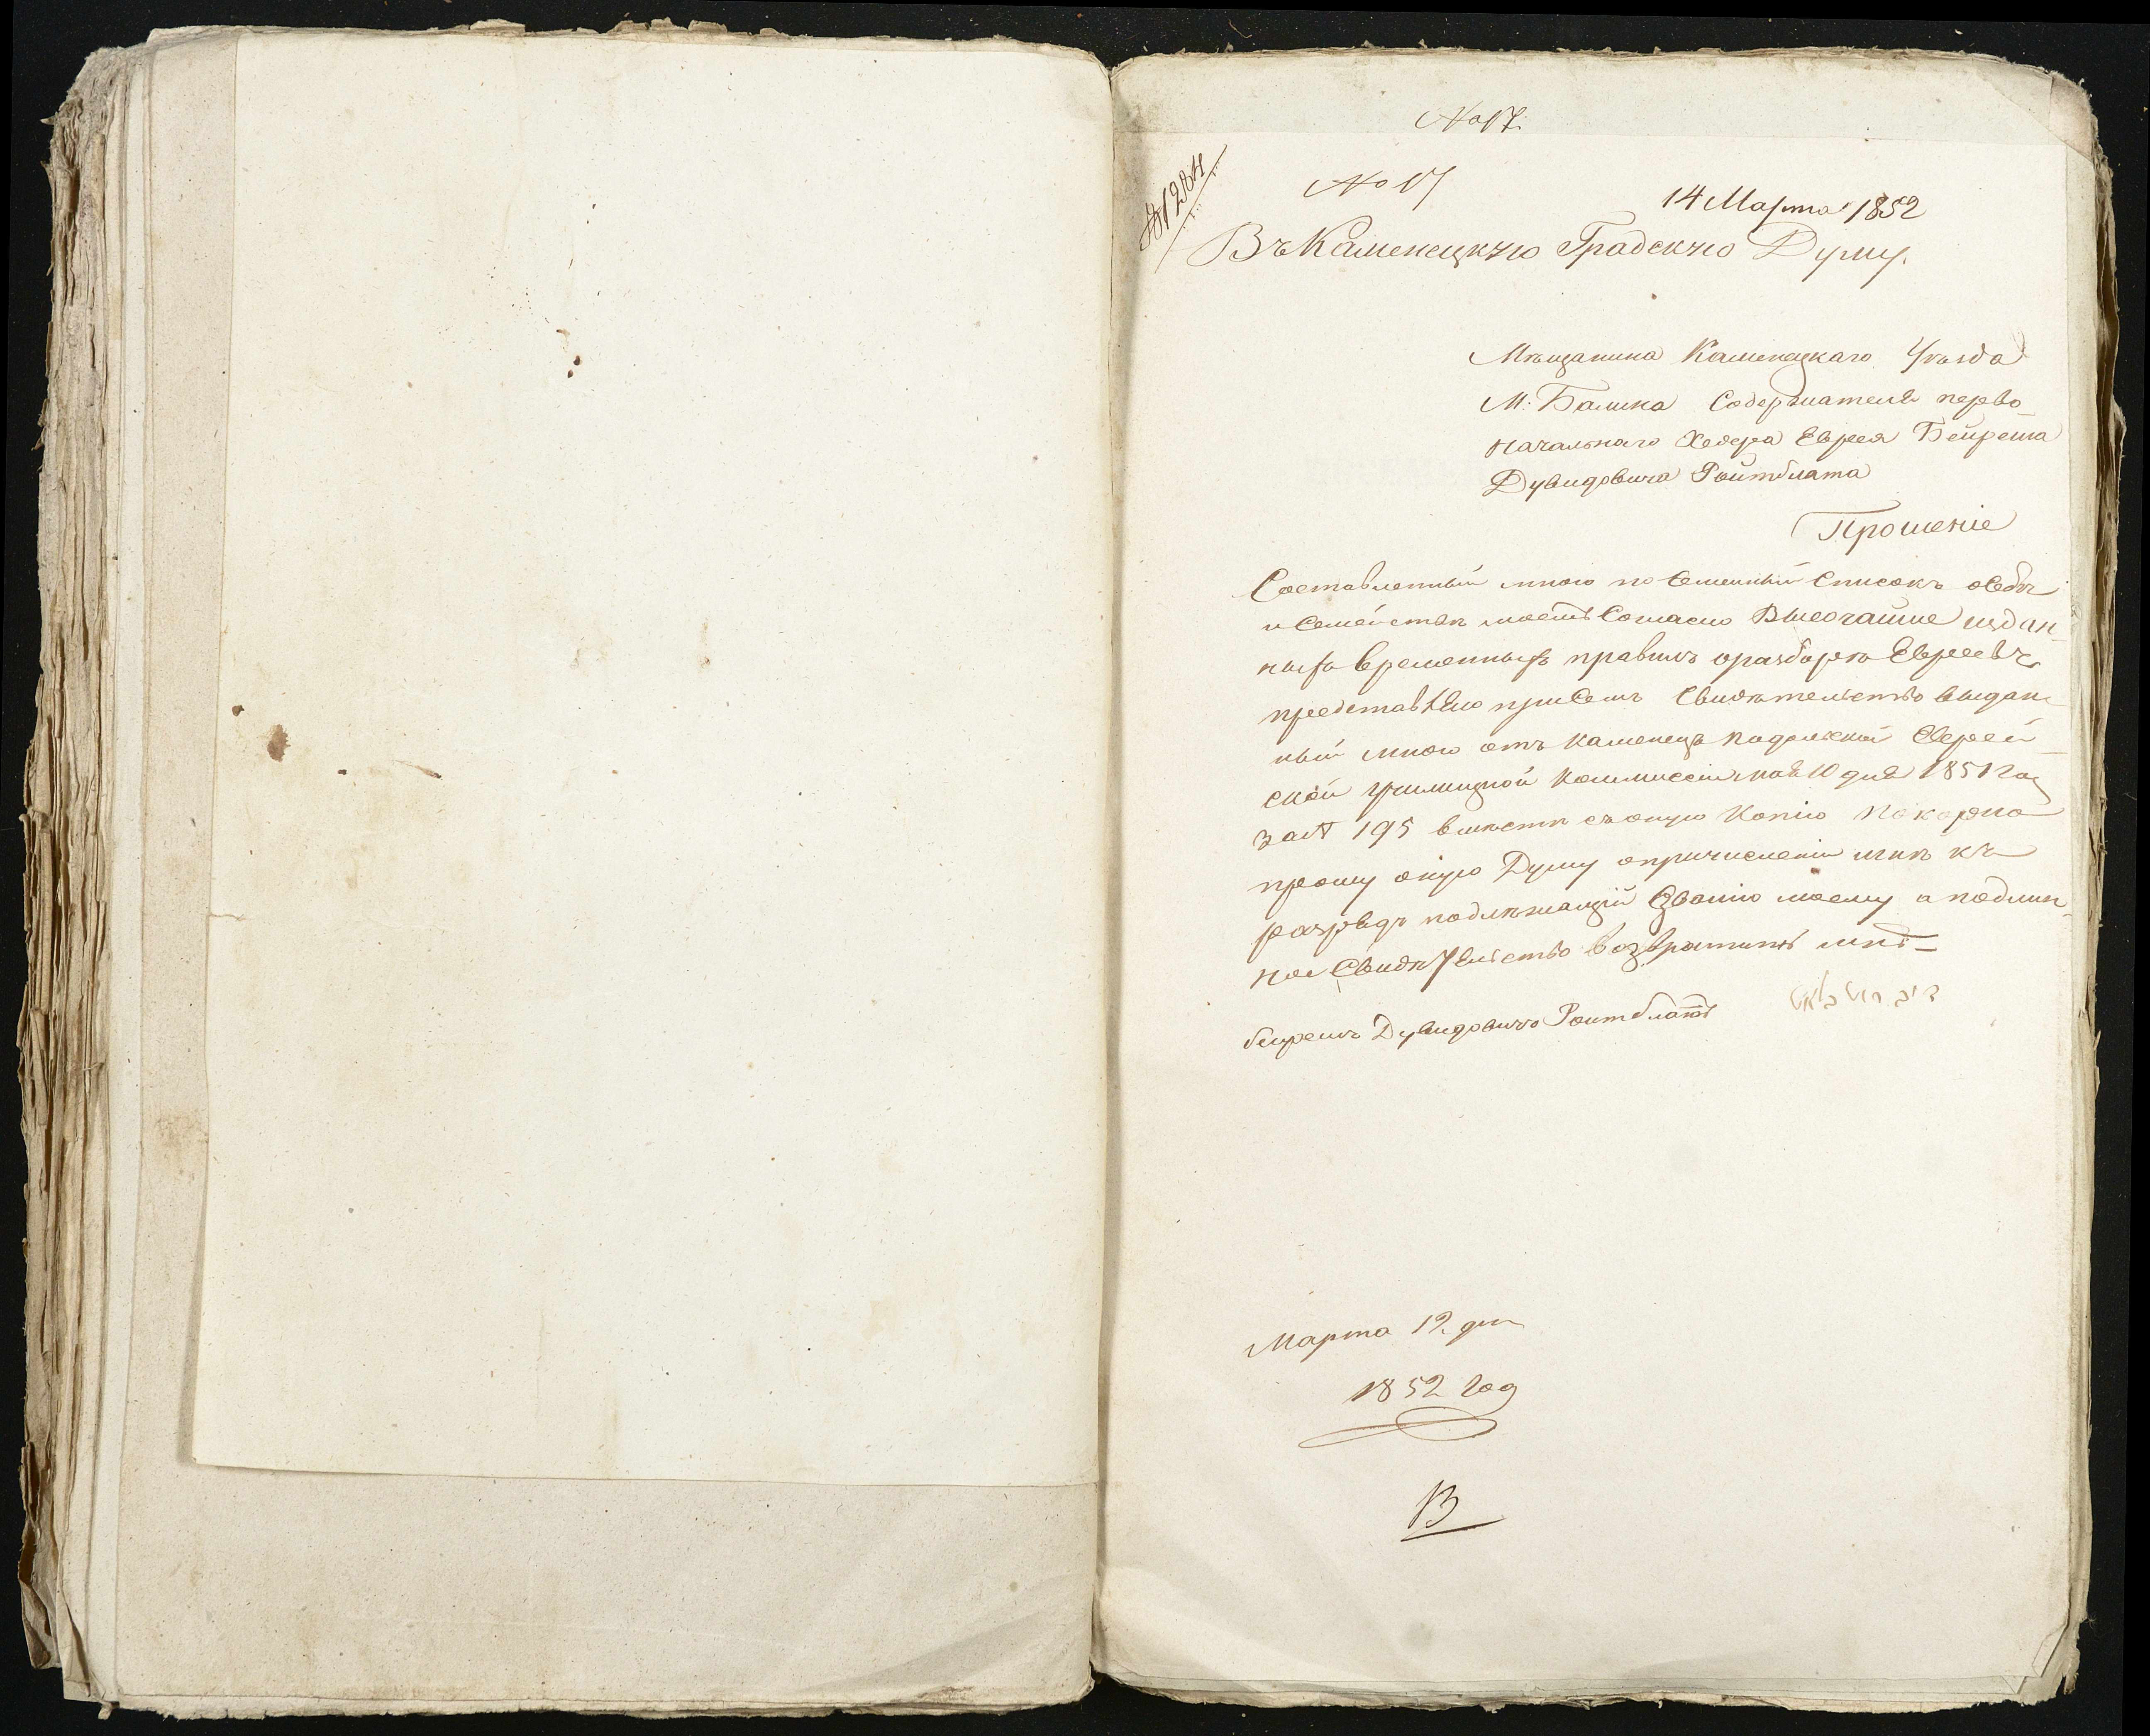 № 17.
№ 1284
№ 17
14 Марта 1852
Въ Каменецкую Градскую Думу.
Мѣщанина Каменецкаго Уѣзда
М: Балика Содержателя перво
начальнаго Хедера Еврея Бейреша
Дувидовича Ройтблата
Прошеніе
Составленный мною по Семейный Списокъ о Себѣ
и Семействѣ моемъ Согласно Высочайше издан
ныхъ временныхъ правилъ о разборѣ Евреевъ
представляю при Семъ Свидѣтельство выдан
ный мною отъ Каменецъ подольской Еврей
ской училищной Коммиссіи 10 дня 1851 год
за № 195 вмѣстѣ съ оную Копію Покорно
прошу оную Думу опричисленіи мнѣ къ
разрядъ подлежащій Званію моему а подлин
ное Свидѣтельство возвратить мнѣ
бейрешъ Дувидовичъ Роитблатъ
Марта 12 дня
1852 год
В